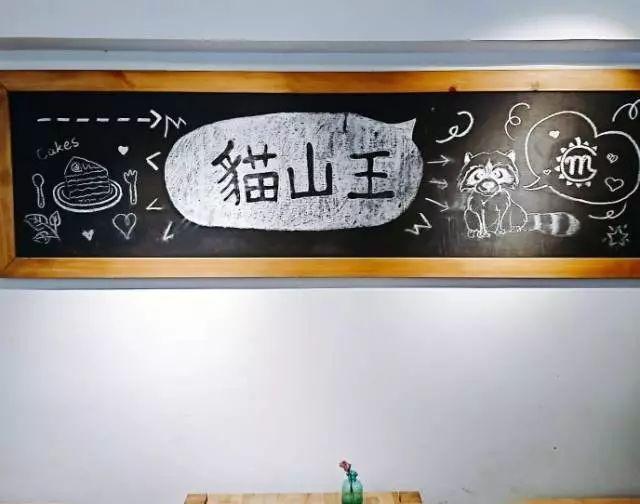 Cakes
貓山王
m